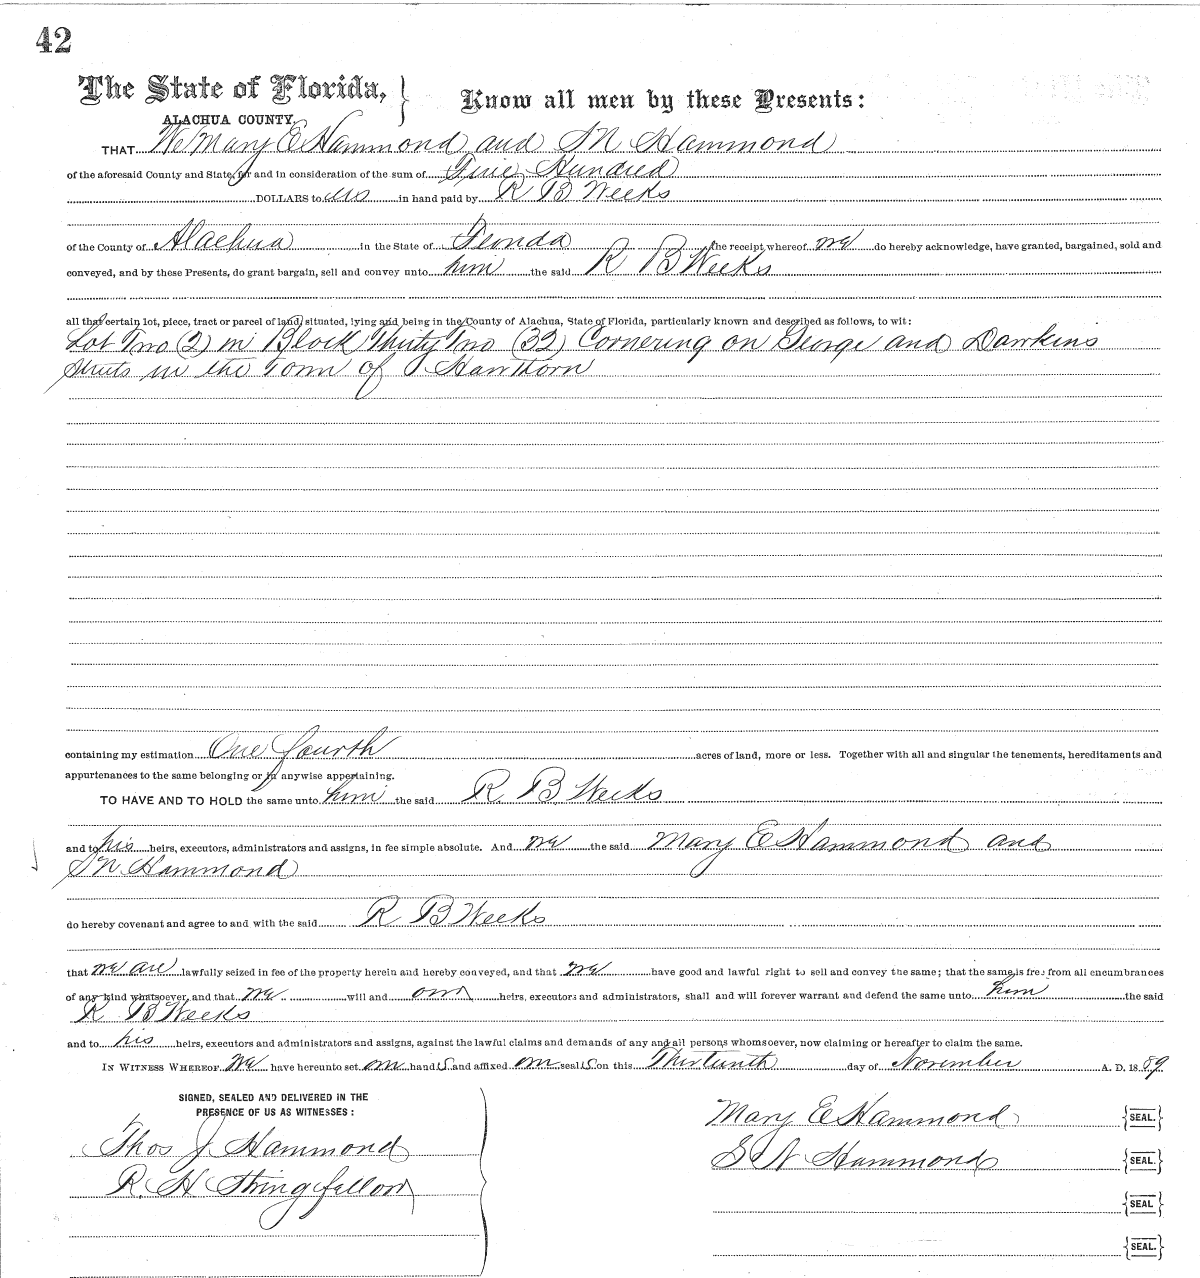 42
The State of Florida, } Know all men by these Presents:
ALACHUA COUNTY.
THAT We Mary E Hammond and S N Hammond
of the aforesaid County and State, for and in consideration of the sum of Five Hundred
DOLLARS to us in hand paid by R B Weeks
of the County of Alachua in the State of Florida the receipt whereof we do hereby acknowledge, have granted, bargained, sold and
conveyed, and by these Presents, do grant bargain, sell and convey unto him the said R B Weeks
all that certain lot, piece, tract or parcel of land, situated, lying and being in the County of Alachua, State of Florida, particularly known and described as follows, to wit:
Lot Two (2) in Block Thirty Two (32) Cornering on George and Dawkins
Streets in the Town of Hawthorn
containing my estimation One fourth acres of land, more or less. Together with all and singular the tenements, hereditaments and
appurtenances to the same belonging or in anywise appertaining.
TO HAVE AND TO HOLD the same unto him the said R B Weeks
and to his heirs, executors, administrators and assigns, in fee simple absolute. And we the said Mary E Hammond and
S N Hammond
do hereby covenant and agree to and with the said R B Weeks
that we are lawfully seized in fee of the property herein and hereby conveyed, and that we have good and lawful right to sell and convey the same; that the same is free from all encumbrances
of any kind whatsoever, and that we will and our heirs, executors and administrators, shall and will forever warrant and defend the same unto him the said
R B Weeks
and to his heirs, executors and administrators and assigns, against the lawful claims and demands of any and all persons whomsoever, now claiming or hereafter to claim the same.
IN WITNESS WHEREOF, We have hereunto set our hands and affixed our seals on this Thirteenth day of November A. D. 1889
SIGNED, SEALED AND DELIVERED IN THE
PRESENCE OF US AS WITNESSES:
Mary E Hammond {SEAL.}
Thos J Hammond
S N Hammond {SEAL.}
R. H Stringfellow
{SEAL}
{SEAL.}